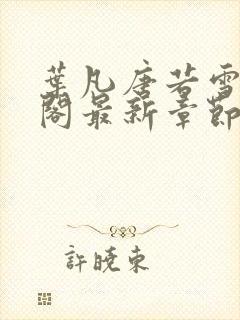 葉凡唐若雪
閣最新章節
許曉東